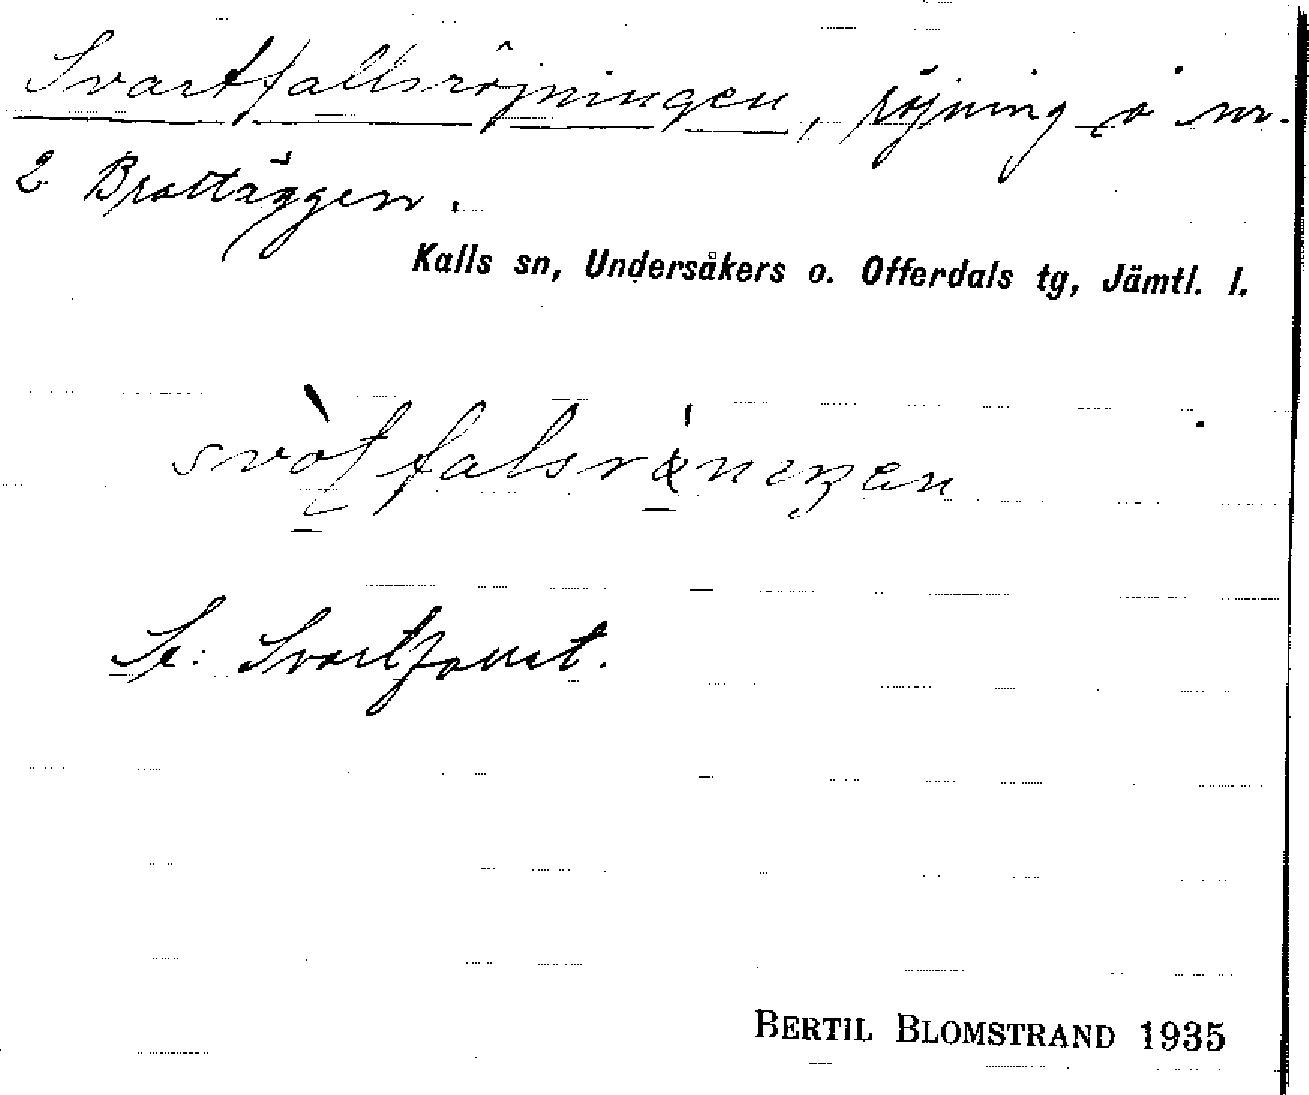 Svartfallsröjningen, röjning å nr.
2 Brattäggen.
Kalls sn, Undersåkers o. Offerdals tg, Jämtl. l.
Se: Svartfallet.
BERTIL BLOMSTRAND 1935